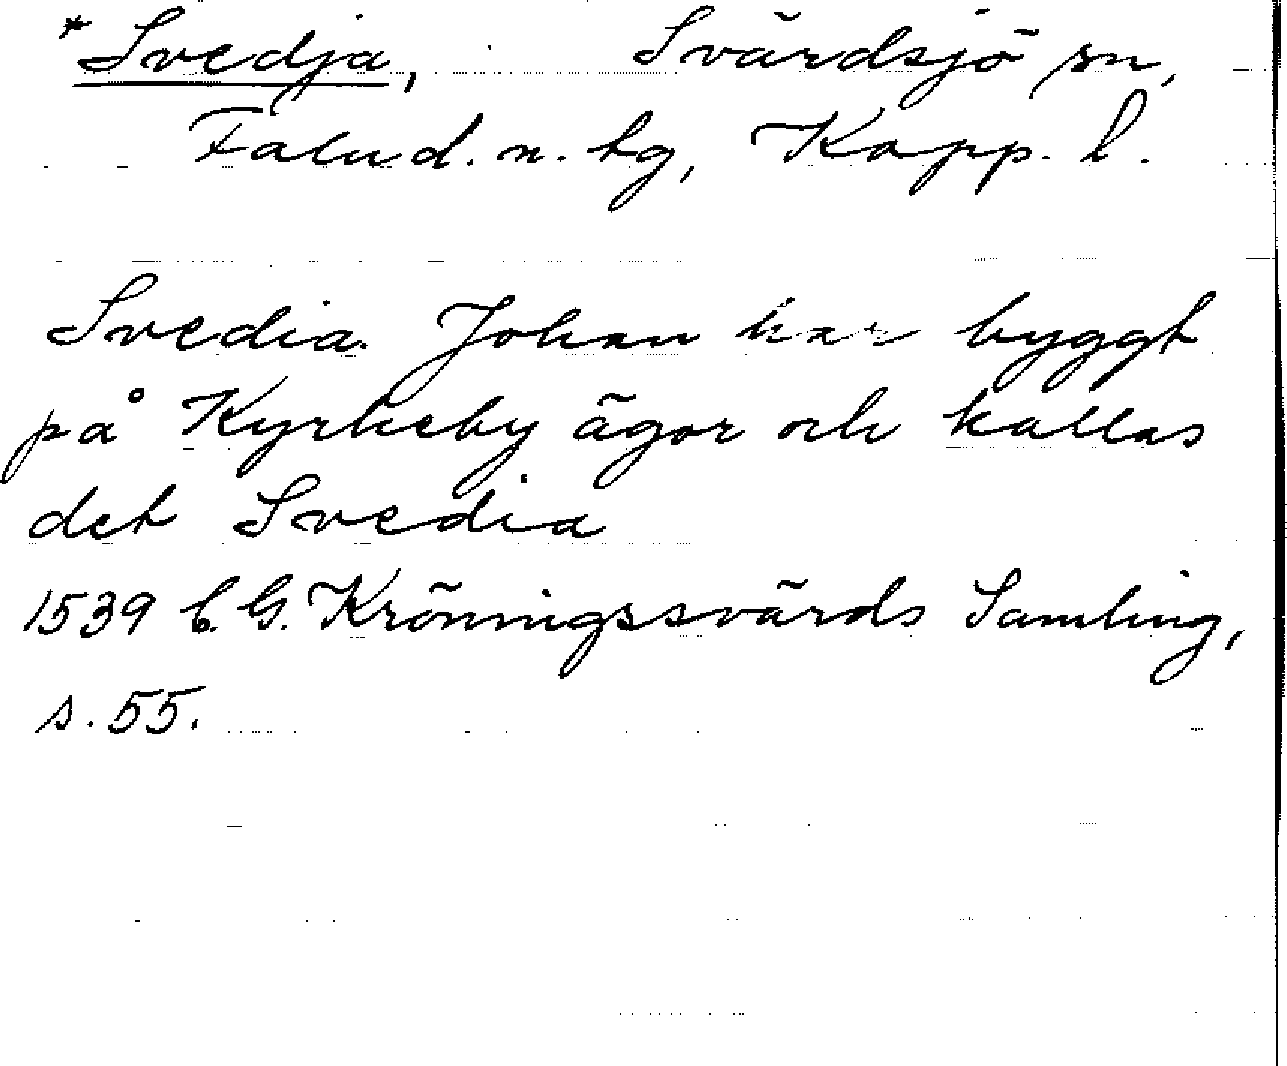 *Svedja, Svärdsjö sn,
Falu d. n. tg, Kopp. l.
Svedia. Johan har byggt
på Kyrkeby ägor och kallas
det Svedia
1539 C. G. Kröningssvärds Samling,
s. 55.